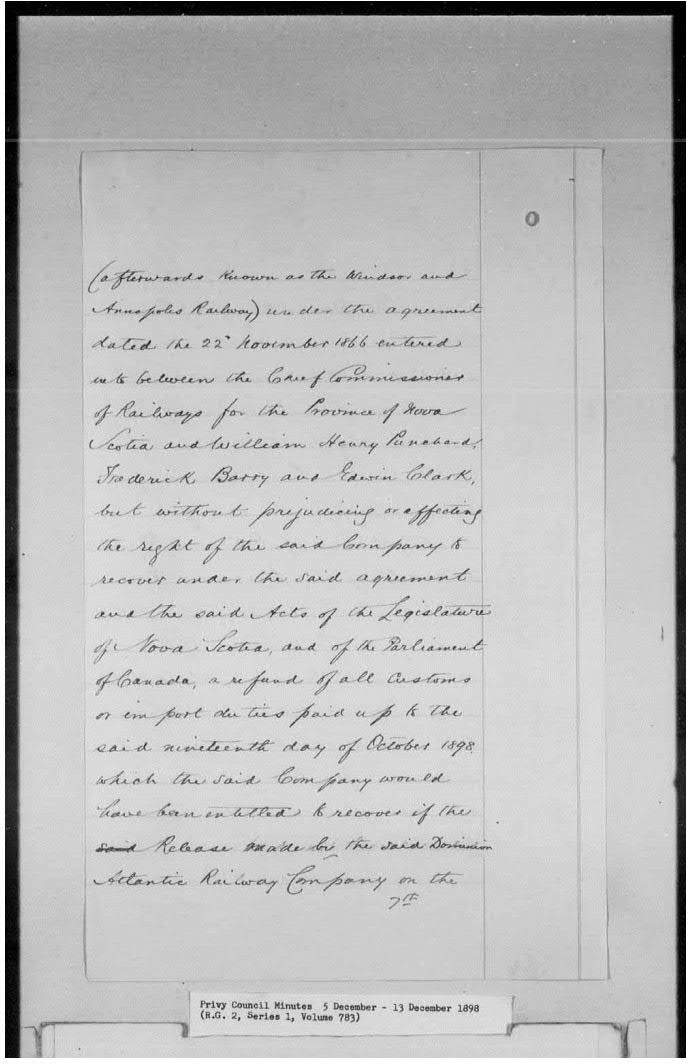 0
(afterwards known as the Windsor and
Annapolis Railway) under the agreement
dated the 22d November 1866 entered
into between the Chief Commissioner
of Railways for the Province of Nova
Scotia and William Henry Punchard,
Frederick Barry and Edwin Clark,
but without prejudicing or affecting
the right of the said Company to
recover under the said agreement
and the said Acts of the Legislature
of Nova Scotia, and of the Parliament
of Canada, a refund of all Customs
or import duties paid up to the
said nineteenth day of October 1898
which the said Company would
have been entitled to recover if the
said Release made by the said Dominion
Atlantic Railway Company on the
7th
Privy Council Minutes 5 December - 13 December 1898
(R.G. 2, Series 1, Volume 783)